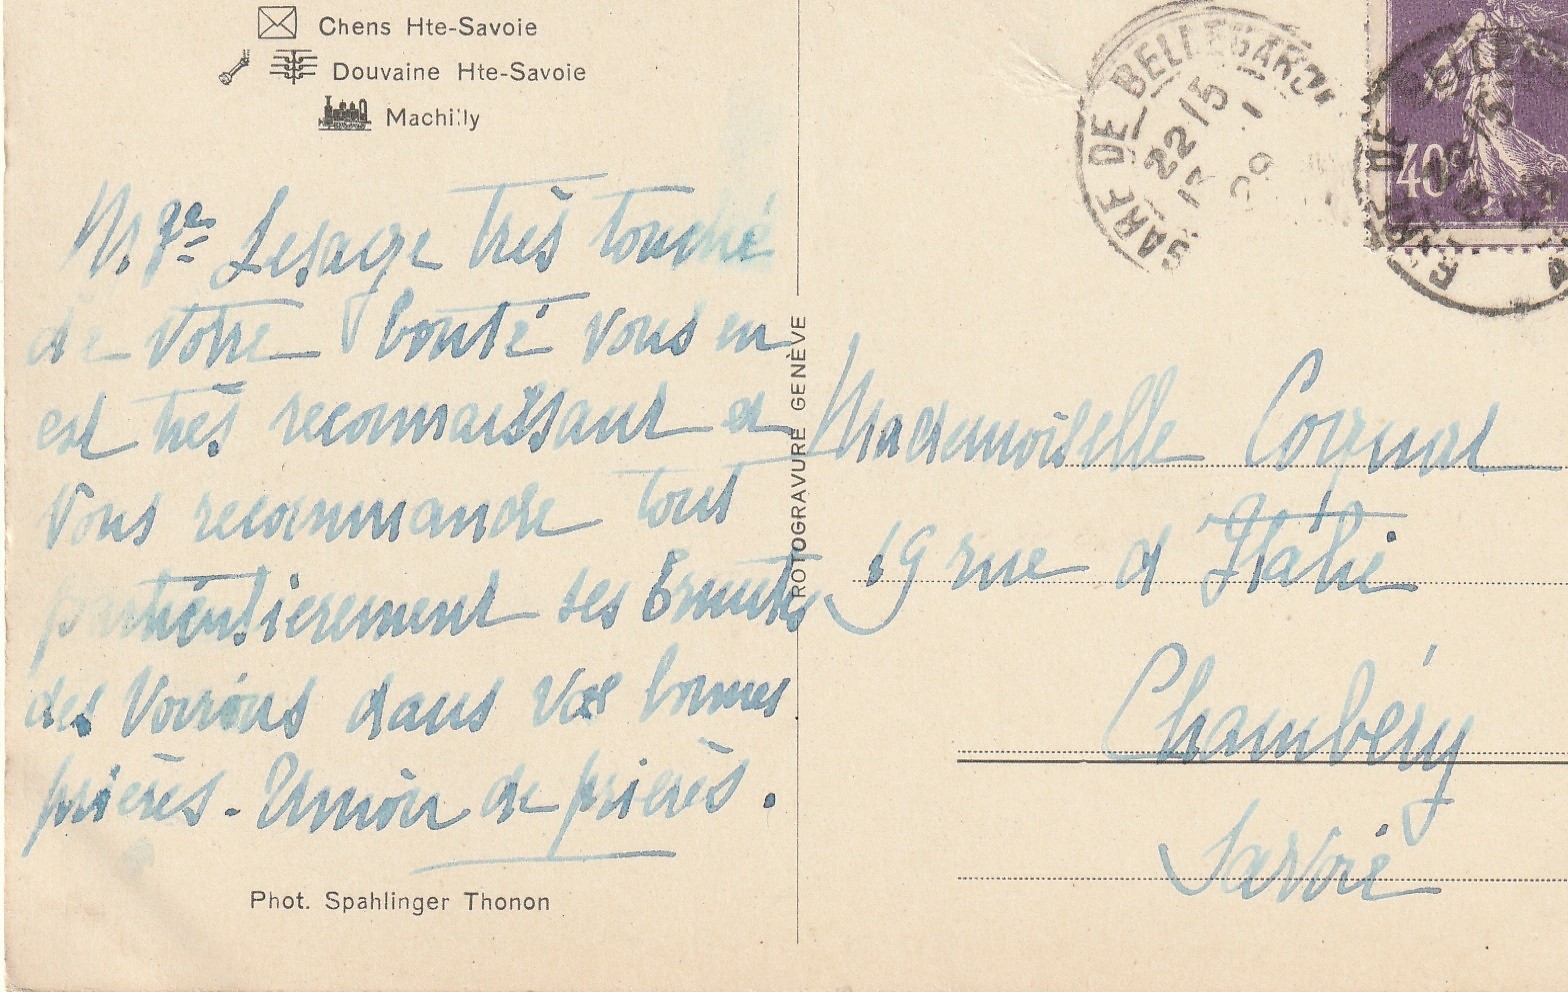 Chens Hte-Savoie
Douvaine Hte-Savoie
Machilly
Mgr Lesage très touché
de votre bonté vous en
est très reconnaissant et
vous recommande tout
particulièrement ses Ermites
des Voirons dans vos bonnes
prières - Union de prières.
Phot. Spahlinger Thonon
ROTOGRAVURE GENÈVE
GARE DE BELLEGARDE
22 15
40
Mademoiselle
19 rue d'Italie
Chambéry
Savoie